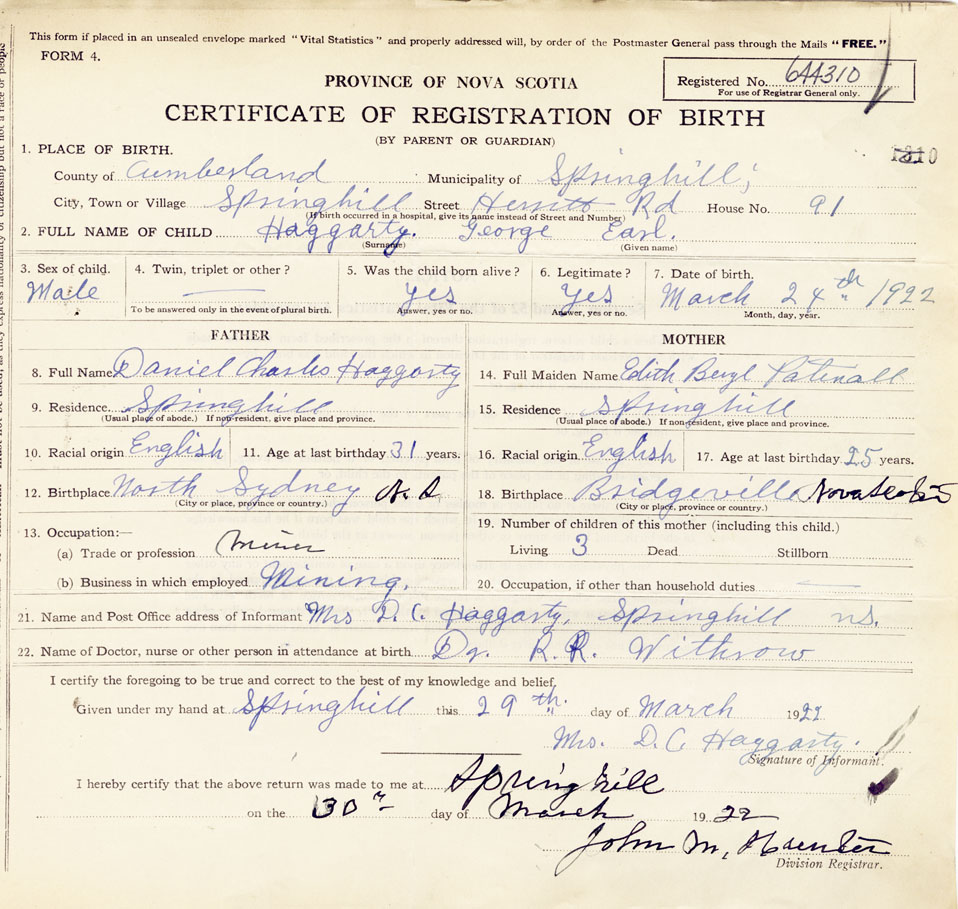 This form if placed in an unsealed envelope marked "Vital Statistics" and properly addressed will, by order of the Postmaster General pass through the Mails "FREE."
FORM 4.
Registered No. 644310
For use of Registrar General only.
PROVINCE OF NOVA SCOTIA
CERTIFICATE OF REGISTRATION OF BIRTH
(BY PARENT OR GUARDIAN)
1. PLACE OF BIRTH.
County of Cumberland Municipality of Springhill,
City, Town or Village Springhill Street Rd House No. 91
(If birth occurred in a hospital, give its name instead of Street and Number)
2. FULL NAME OF CHILD Haggarty. George Earl.
(Surname) (Given name)
3. Sex of child. 4. Twin, triplet or other? 5. Was the child born alive? 6. Legitimate? 7. Date of birth.
Male yes Yes March 24th 1922
To be answered only in the event of plural birth. Answer, yes or no. Answer, yes or no. Month, day, year.
FATHER
8. Full Name Daniel Charles Haggarty
9. Residence Springhill
(Usual place of abode.) If non-resident, give place and province.
10. Racial origin English 11. Age at last birthday 31 years.
12. Birthplace North Sydney N.S
(City or place, province or country.)
13. Occupation:—
(a) Trade or profession Miner
(b) Business in which employed Mining.
MOTHER
14. Full Maiden Name Edith Beryl
15. Residence Springhill
(Usual place of abode.) If non-resident, give place and province.
16. Racial origin English 17. Age at last birthday 25 years.
18. Birthplace Bridgeville Nova Scotia
(City or place, province or country.)
19. Number of children of this mother (including this child.)
Living 3 Dead Stillborn
20. Occupation, if other than household duties
21. Name and Post Office address of Informant Mrs D. C. Haggarty, Springhill ns.
22. Name of Doctor, nurse or other person in attendance at birth Dr. R. R. Withrow
I certify the foregoing to be true and correct to the best of my knowledge and belief.
Given under my hand at Springhill this 29th day of March 1922
Mrs. D. C. Haggarty.
Signature of Informant.
I hereby certify that the above return was made to me at Springhill
on the 30th day of March 1922
John M. Hunter
Division Registrar.